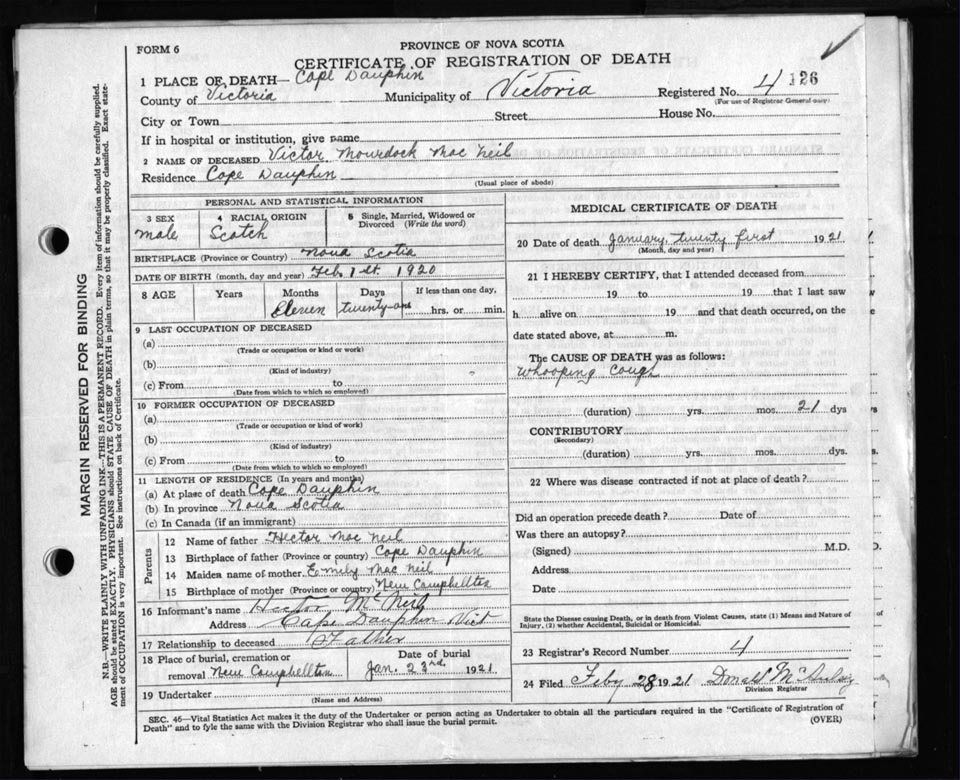 FORM 6
PROVINCE OF NOVA SCOTIA
CERTIFICATE OF REGISTRATION OF DEATH
1 PLACE OF DEATH— Cape Dauphin
County of Victoria Municipality of Victoria Registered No. 4 126
(For use of Registrar General only)
City or Town Street House No.
If in hospital or institution, give name
2 NAME OF DECEASED Victor Mourdock Mac Neil
Residence Cape Dauphin
(Usual place of abode)
PERSONAL AND STATISTICAL INFORMATION
3 SEX 4 RACIAL ORIGIN 5 Single, Married, Widowed or Divorced (Write the word)
male Scotch
BIRTHPLACE (Province or Country) Nova Scotia
DATE OF BIRTH (month, day and year) Feb. 1 st. 1920
8 AGE Years Months Days If less than one day,
Eleven twenty-one hrs. or min.
9 LAST OCCUPATION OF DECEASED
(a)
(Trade or occupation or kind or work)
(b)
(Kind of industry)
(c) From to
(Date from which to which so employed)
10 FORMER OCCUPATION OF DECEASED
(a)
(Trade or occupation or kind of work)
(b)
(Kind of industry)
(c) From to
(Date from which to which so employed)
11 LENGTH OF RESIDENCE (In years and months)
(a) At place of death Cape Dauphin
(b) In province Nova Scotia
(c) In Canada (if an immigrant)
Parents
12 Name of father Hector Mac Neil
13 Birthplace of father (Province or country) Cape Dauphin
14 Maiden name of mother Emily Mac Neil
15 Birthplace of mother (Province or country) New Campbellton
16 Informant's name Hector McNeil
Address Cape Dauphin Vict
17 Relationship to deceased Father
18 Place of burial, cremation or removal New Campbellton
Date of burial
Jan. 23rd. 1921
19 Undertaker
(Name and Address)
MEDICAL CERTIFICATE OF DEATH
20 Date of death January, twenty first 1921
(Month, day and year)
21 I HEREBY CERTIFY, that I attended deceased from
19 to 19 that I last saw
h alive on 19 and that death occurred, on the
date stated above, at m.
The CAUSE OF DEATH was as follows:
Whooping Cough
(duration) yrs. mos. 21 dys
CONTRIBUTORY
(Secondary)
(duration) yrs. mos. dys.
22 Where was disease contracted if not at place of death?
Did an operation precede death? Date of
Was there an autopsy?
(Signed) M.D.
Address
Date
State the Disease causing Death, or in death from Violent Causes, state (1) Means and Nature of
Injury, (2) whether Accidental, Suicidal or Homicidal.
23 Registrar's Record Number 4
24 Filed Feby 28 1921 Donald
Division Registrar
SEC. 46—Vital Statistics Act makes it the duty of the Undertaker or person acting as Undertaker to obtain all the particulars required in the "Certificate of Registration of
Death" and to fyle the same with the Division Registrar who shall issue the burial permit. (OVER)
MARGIN RESERVED FOR BINDING
N.B.—WRITE PLAINLY WITH UNFADING INK—THIS IS A PERMANENT RECORD. Every item of information should be carefully supplied.
AGE should be stated EXACTLY. PHYSICIANS should STATE CAUSE OF DEATH in plain terms, so that it may be properly classified. Exact state-
ment of OCCUPATION is very important. See instructions on back of Certificate.